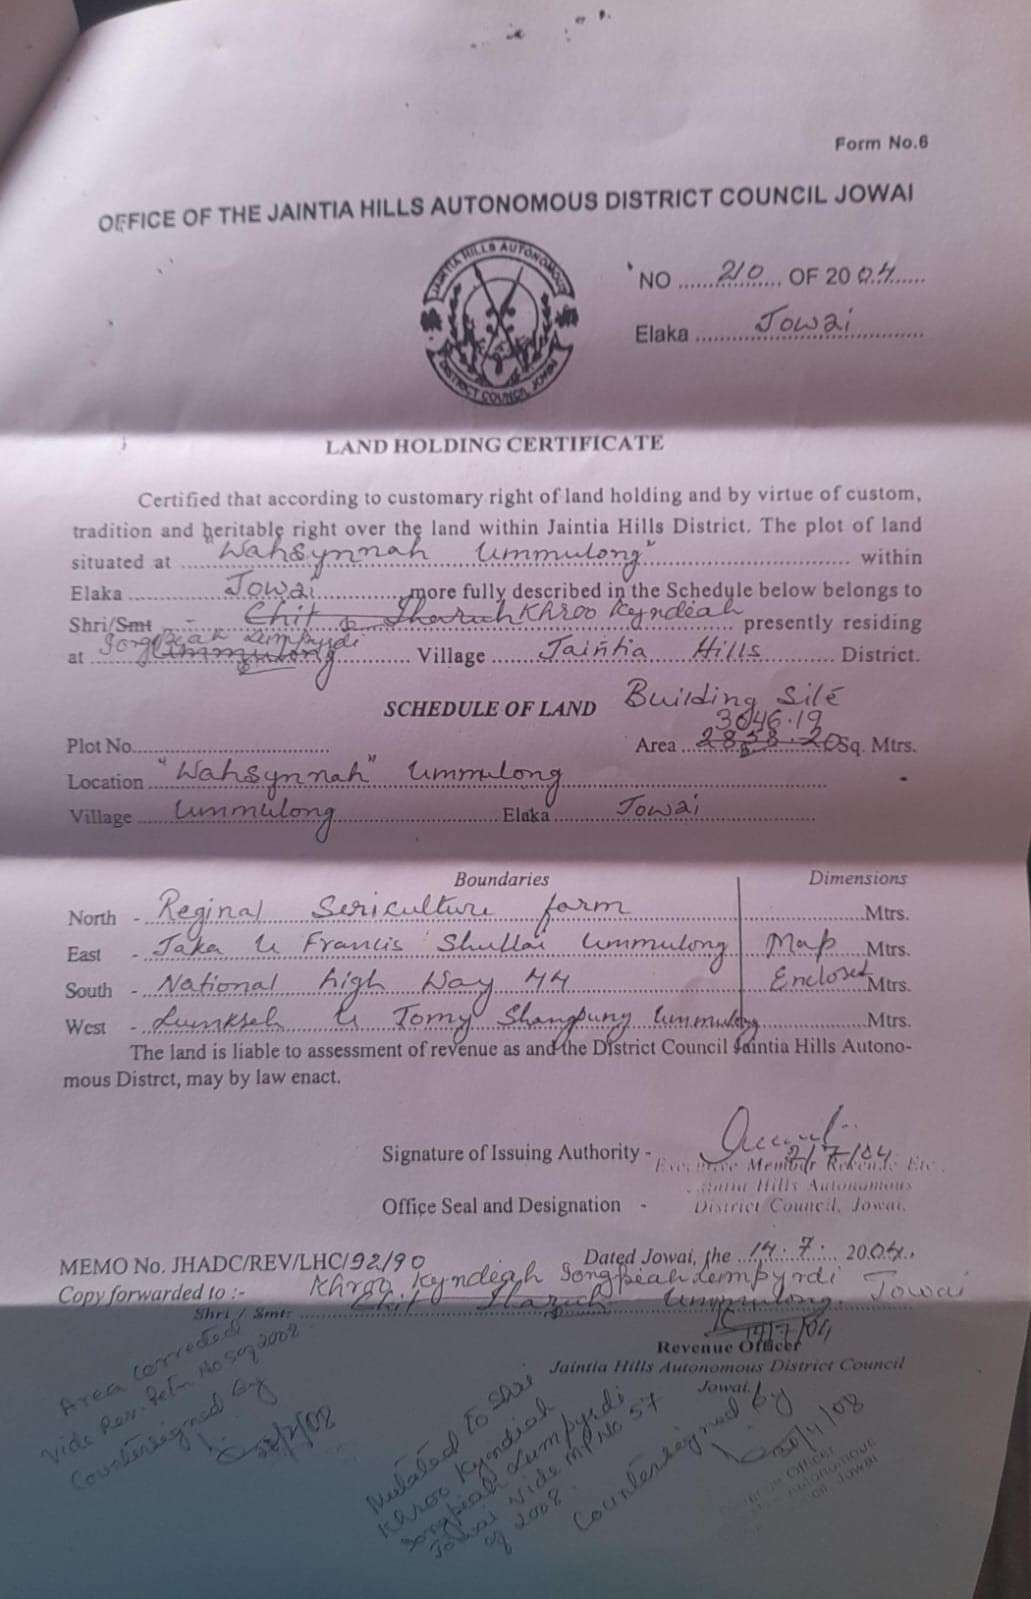 Form No.6
OFFICE OF THE JAINTIA HILLS AUTONOMOUS DISTRICT COUNCIL JOWAI
JAINTIA HILLS AUTONOMOUS
DISTRICT COUNCIL JOWAI
NO 210 OF 2004
Elaka Jowai
LAND HOLDING CERTIFICATE
Certified that according to customary right of land holding and by virtue of custom,
tradition and heritable right over the land within Jaintia Hills District. The plot of land
situated at "Wahsynnah Ummulong" within
Elaka Jowai more fully described in the Schedule below belongs to
Shri/Smt - Chit Sharuh Khroo Kyndiah presently residing
Songpiah Lumpyrdi
at Ummulong Village Jaintia Hills District.
SCHEDULE OF LAND Building Site
3046.19
Plot No. Area 2858.20 Sq. Mtrs.
Location "Wahsynnah" Ummulong
Village Ummulong Elaka Jowai
Boundaries Dimensions
North - Reginal Sericulture farm Mtrs.
East - Jaka U Francis Shullai Ummulong Map Mtrs.
South - National high Way 44 Enclosed Mtrs.
West - Lumkseh U Tomy Shangpung Ummulong Mtrs.
The land is liable to assessment of revenue as and the District Council Jaintia Hills Autono-
mous Distrct, may by law enact.
Signature of Issuing Authority -
2/7/04
Executive Member Revenue Etc.
Jaintia Hills Autonomous
Office Seal and Designation - District Council, Jowai.
MEMO No. JHADC/REV/LHC/92/90 Dated Jowai, the 14.7. 2004.
Copy forwarded to :- Khroo Kyndiah Songpiah Lumpyrdi Jowai
Shri / Smt: Chit Sharuh Ummulong
Revenue Officer
Jaintia Hills Autonomous District Council
Jowai.
Area corrected
Vide Rev. Petn No 2008
Countersigned by
Mutated to Shri
Khroo Kyndiah
Songpiah Lumpyrdi
Jowai Vide MP No 57
of 2008.
Countersigned by
/4/08
Officer
Autonomous
Jowai